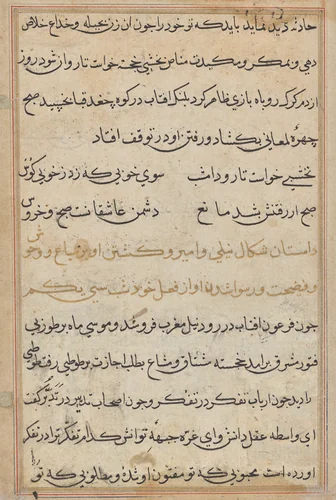 حادثه دید نماید باید که تو خود را چون آن زن بحیله و خداع خلاص
دهی و بمکر و مکیدت مناص نخشبی خجسته خواست تا روان شود روز
از دم گرگ روباه بازی ظاهر کرد پلنگ آفتاب در کوه چفید صبح
چهره لمعانی بگشاد و رفتن او در توقف افتاد
نخشبی خواست تا رود امشب سوی خوبی که زد ز خوبی کوس
صبح از رفتنش شد مانع دشمن عاشقانست صبح و خروس
داستان شکال نیلی و امیر و کشتن او بر سباع و وحوش
و فضیحت و رسوا شدن او از فعل خویش سی یکم
چون فرعون آفتاب در رود نیل مغرب فرو شد و موسی ماه بر طور بی
فتور مشرق برآمد خجسته مشتاق و شاع بطلب اجازت بر طوطی رفت طوطی
را دید چون ارباب تفکر در تفکر و چون اصحاب تدبیر در تدبر گفت
ای واسطه عقل دانش و ای غره جبهه توانش کدام تفکر ترا در تفکر
آورده است محبوبی که تو مفتون او شده و مطلوبی که تو